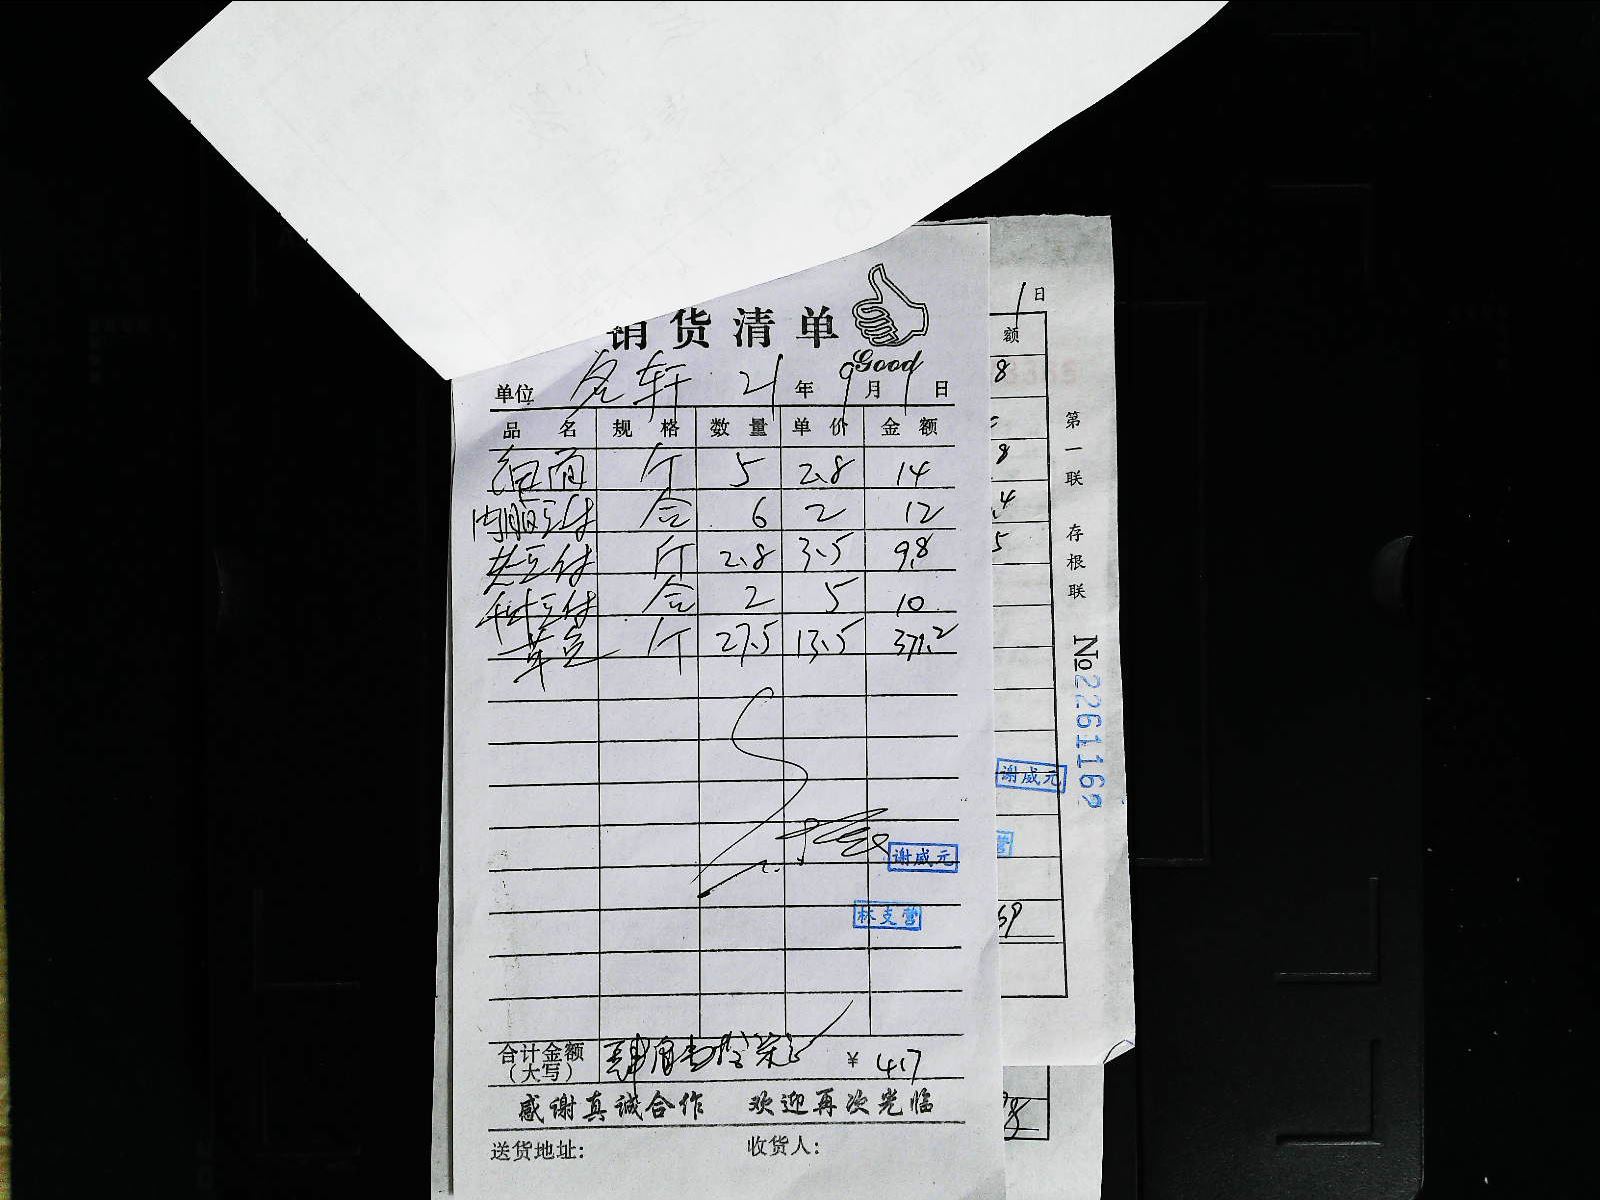 销货清单
Good
单位 名轩 21年9月1日
品名 规格 数量 单价 金额
斤 5 2.8 14
内脂豆付 合 6 2 12
老豆付 斤 2.8 3.5 9.8
豆付 合 2 5 10
斤 27.5 13.5 371.2
谢威元
林支营
合计金额（大写） 肆百壹拾柒元 ¥ 417
感谢真诚合作 欢迎再次光临
送货地址： 收货人：
1日
额
8
8
.4
5
第一联 存根联
谢威元
营
59